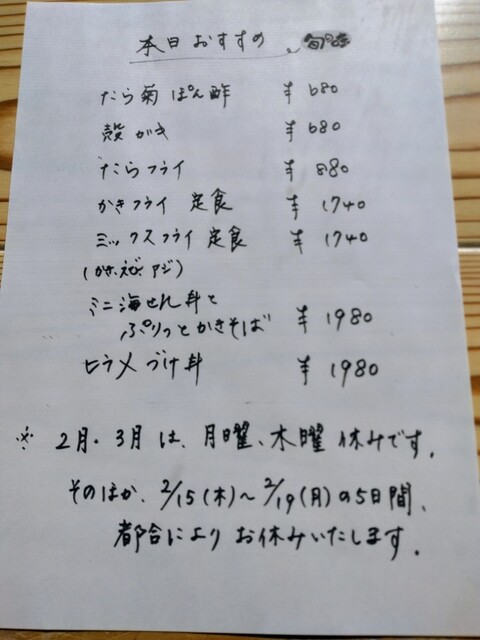 本日おすすめ
たら菊 ぽん酢 ¥680
殻がき ¥680
たらフライ ¥880
かきフライ 定食 ¥1740
ミックスフライ定食 ¥1740
(かき、えび、アジ)
ミニ海せん丼と
ぷりっとかきそば ¥1980
ヒラメづけ丼 ¥1980
※ 2月・3月は、月曜、木曜休みです。
そのほか、2/15(木)~2/19(月)の5日間、
都合によりお休みいたします。